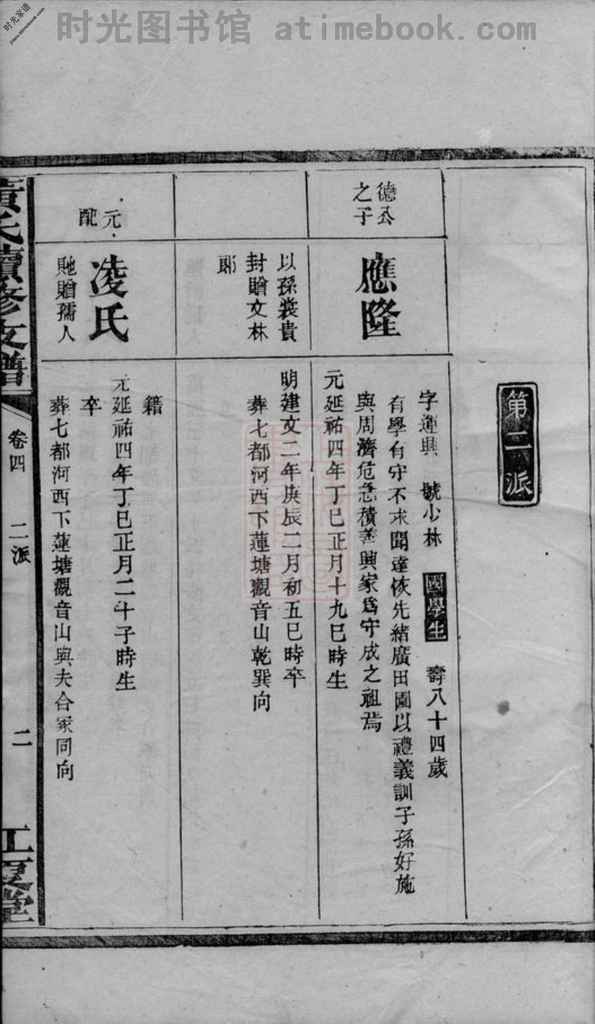 时光图书馆 atimebook.com
时光家谱
www.atimebook.com
第二派
德公
之子
應隆
字運興 號少林 國學生 壽八十四歲
有學有守不求聞達恢先緒廣田園以禮義訓子孫好施
與周濟危急積善興家爲守成之祖焉
元延祐四年丁巳正月十九巳時生
以孫裳貴
封贈文林
郎
明建文二年庚辰二月初五巳時卒
葬七都河西下蓮塘觀音山乾巽向
元
配
凌氏
貤贈孺人
籍
元延祐四年丁巳正月二十子時生
卒
葬七都河西下蓮塘觀音山與夫合冢同向
黃氏續修支譜
卷四
二派
二
江夏堂